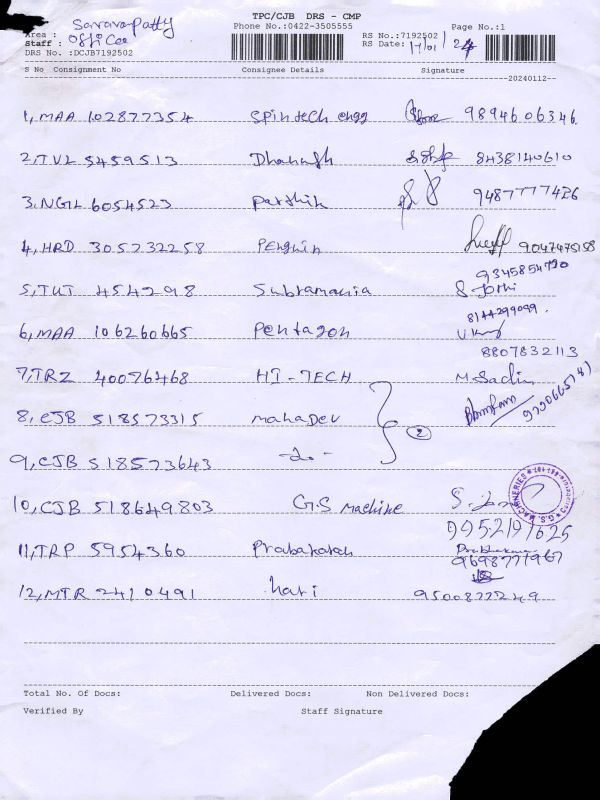 TPC/CJB DRS - CMP
Area : Saravapatty
Phone No.:0422-3505555
Page No.:1
Staff : Office
RS No.:7192502
RS Date: 17/01/24
DRS No. :DCJB7192502
S No Consignment No Consignee Details Signature
20240112--
1, MAA 102877354 Spintech engg 9894606346
2, TVL 5459513 Dhanush 8438140610
3, NGL 6054523 Parthik 9487777426
4, HRD 305232258 Penguin 9047475158
9345854790
5, TUT 454298 Subramania S Jothi
8144299099
6, MAA 106260665 Pentagon
8807832113
7, TRZ 40076468 HI-TECH M. Sachin
8, CJB 518573315 mahaDev 2
9, CJB 518573643 -do-
10, CJB 518649803 G.S machine
G.S. MACHINERIES
9952191625
11, TRP 5954360 Prabakaran
9698771967
12, MTR 2410491 hari 9500877249
Total No. Of Docs: Delivered Docs: Non Delivered Docs:
Verified By Staff Signature